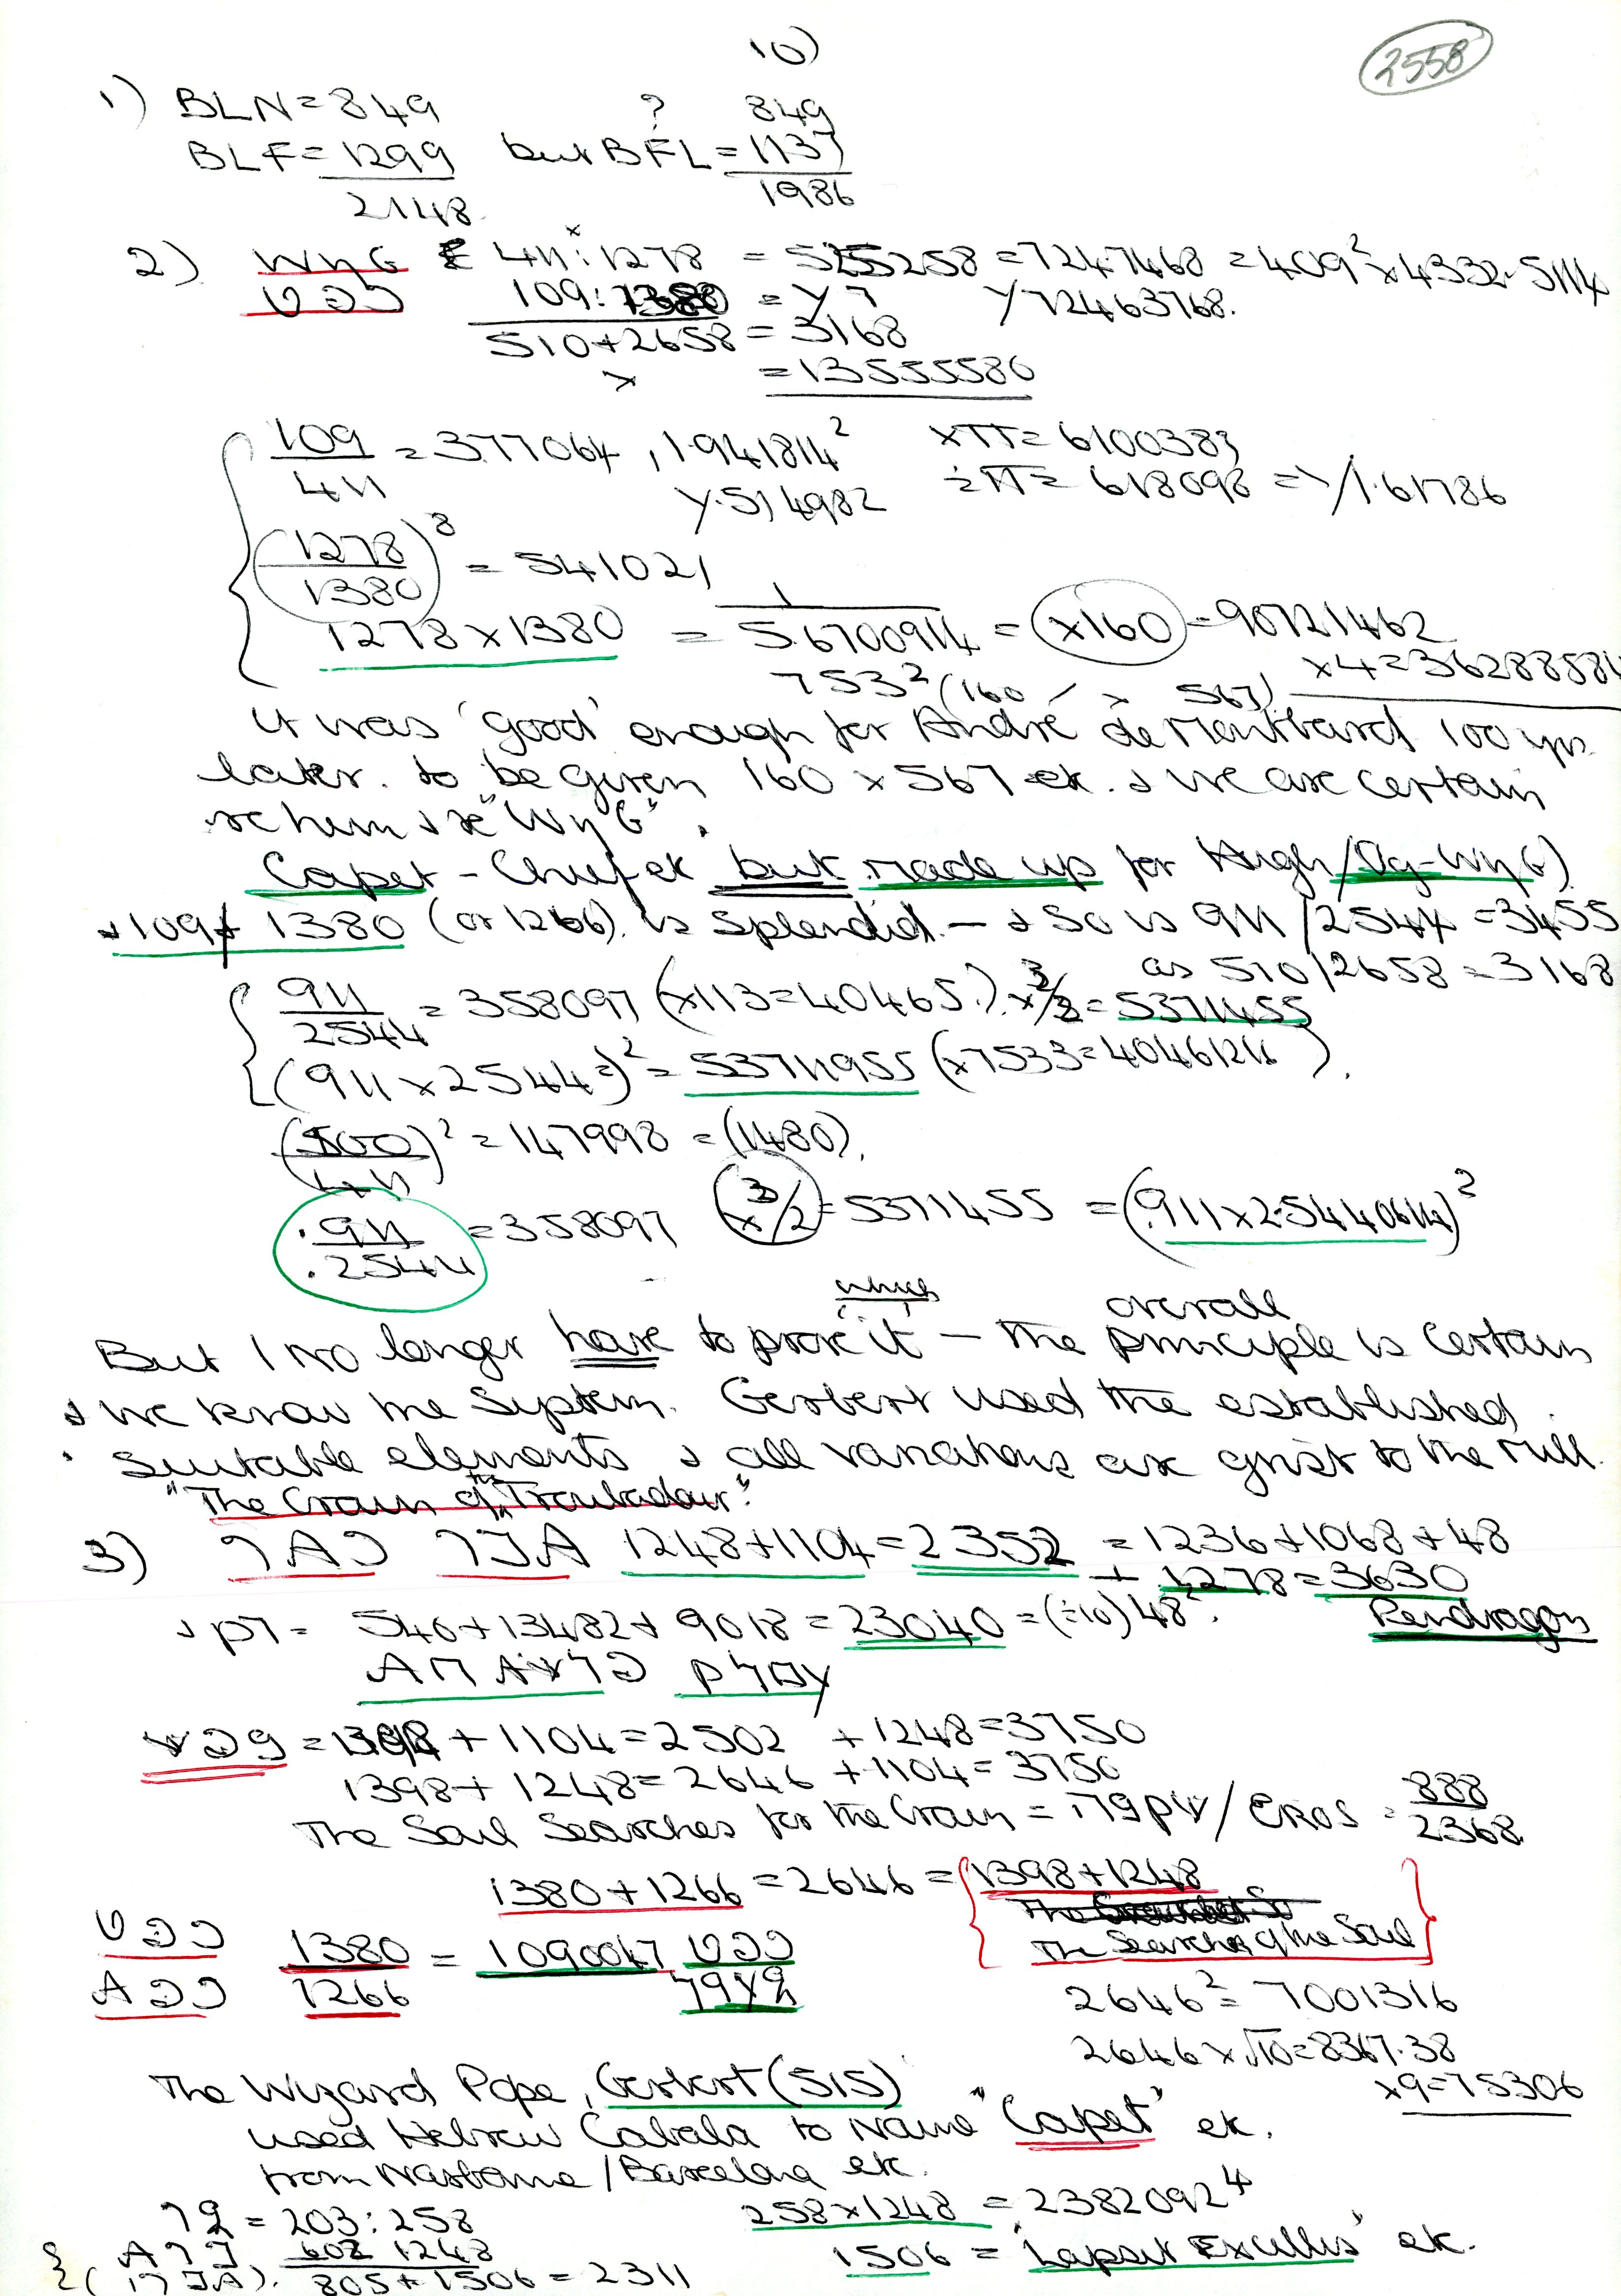 10)
2558
1) BLN = 849 ? 849
BLF = 1299 but BFL = 1137
2148 1986
2) WyG 411 : 1278 = 525258 = 7247468 = 409² × 4332.5114
109 : 1380 = Y7 Y72463768.
510 + 2658 = 3168
× = 13555580
109/411 = 377064, 1.941814² ×π = 6100383
Y.514982 ÷π = 618098 = Y1.61786
(1278/1380)⁸ = 541021
1278 × 1380 = 1/5.6700914 = ×160 = 90721462
753² (160 / × 567) ×4 = 36288584
it was 'good' enough for André de Montbard 100 yrs
later. to be given 160 × 567 etc. & we are certain
re him & re "WyG".
Capet - Chief etc but made up for Hugh/Og-WyG)
& 109 + 1380 (or 1266) is splendid. — & so is 911 / 2544 = 3455
as 510 / 2658 = 3168
911/2544 = 358097 (×113 = 40465.) × 3/2 = 5371455
(911 × 2544 =)² = 53711955 (×7533 = 40461216).
² = 147998 = (1480).
.911/.2544 = 358097 (× 3/2) = 5371455 = (.911 × 2.5440614)²
which
overall
But I no longer have to prove it — the principle is certain
& we know the system. Gerbert used the established
suitable elements & all variations are grist to the mill.
"The Crown of the Troubadour".
3) 1248 + 1104 = 2352 = 1236 + 1068 + 48
+ 1278 = 3630
540 + 13482 + 9018 = 23040 = (÷10) 48². Pendragon
= 1398 + 1104 = 2502 + 1248 = 3750
1398 + 1248 = 2646 + 1104 = 3750
The Soul Searches for the Crown = / EROS = 888
2368
1380 + 1266 = 2646 = 1398 + 1248
The Searches of the Soul
1380/1266 = 1090047
2646² = 7001316
2646 × √10 = 8367.38
×9 = 75306
The Wizard Pope, Gerbert (515)
used Hebrew Cabala to name "Capet" etc.
from Narbonne / Barcelona etc.
= 203 : 258 258 × 1248 = 2382092⁴
602 1248 1506 = "Lapsit Exillis" etc.
805 + 1506 = 2311